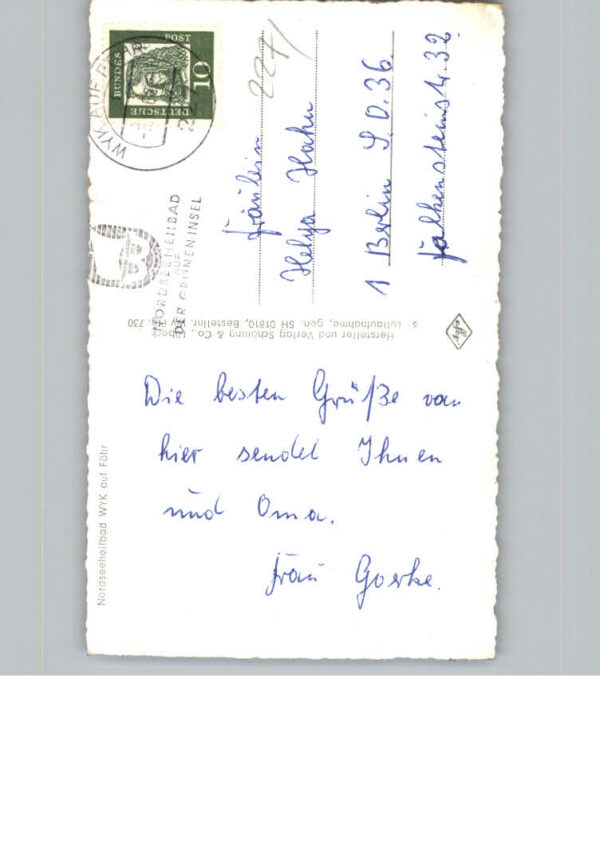 Die besten Grüße von
hier sendet Ihnen
und Oma.
Frau Goerke.
Fräulein
Helga Hahn
1 Berlin S.O. 36
Falkensteinstr. 32
227/
Nordseeheilbad WYK auf Föhr
Hersteller und Verlag Schöning & Co., Lübeck
s Luftaufnahme, gen. SH 01810, Bestellnr. 730
DEUTSCHE
BUNDES
POST
10
WYK AUF FÖHR
NORDSEEHEILBAD
AUF
DER GRÜNEN INSEL